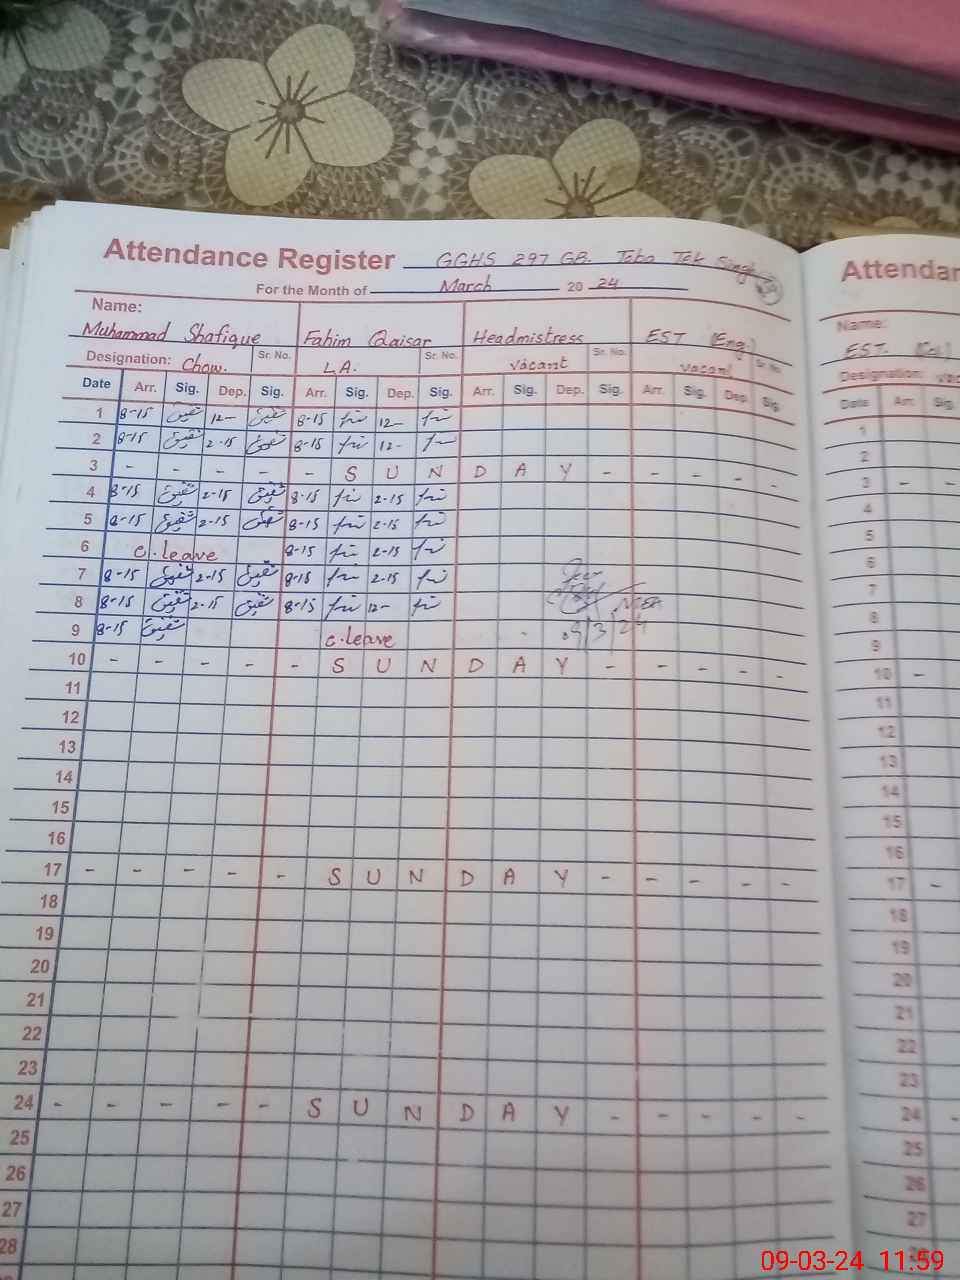 Attendance Register GGHS 297 GB. Toba Tek Singh
For the Month of March 20 24
Name:
Muhammad Shafique Fahim Qaisar Headmistress EST (Eng.)
Designation: Chow. Sr. No. L.A. Sr. No. vacant Sr. No. vacant Sr. No.
Date Arr. Sig. Dep. Sig. Arr. Sig. Dep. Sig. Arr. Sig. Dep. Sig. Arr. Sig. Dep. Sig.
1 8-15 شفیق 12- شفیق 8-15 12-
2 8-15 شفیق 2-15 شفیق 8-15 12-
3 - - - - - S U N D A Y - - - - -
4 8-15 شفیق 2-15 شفیق 8-15 2-15
5 8-15 شفیق 2-15 شفیق 8-15 2-15
6 c.leave 8-15 2-15
7 8-15 شفیق 2-15 شفیق 8-15 2-15
8 8-15 شفیق 2-15 شفیق 8-15 12-
9 8-15 شفیق c.leave 9/3/24
10 - - - - - S U N D A Y - - - - -
11
12
13
14
15
16
17 - - - - - S U N D A Y - - - - -
18
19
20
21
22
23
24 - - - - - S U N D A Y - - - - -
25
26
27
28
Attendan
Name:
EST.
Designation:
Date Arr. Sig.
1
2
3 - -
4
5
6
7
8
9
10 -
11
12
13
14
15
16
17 -
18
19
20
21
22
23
24 -
25
26
27
09-03-24 11:59